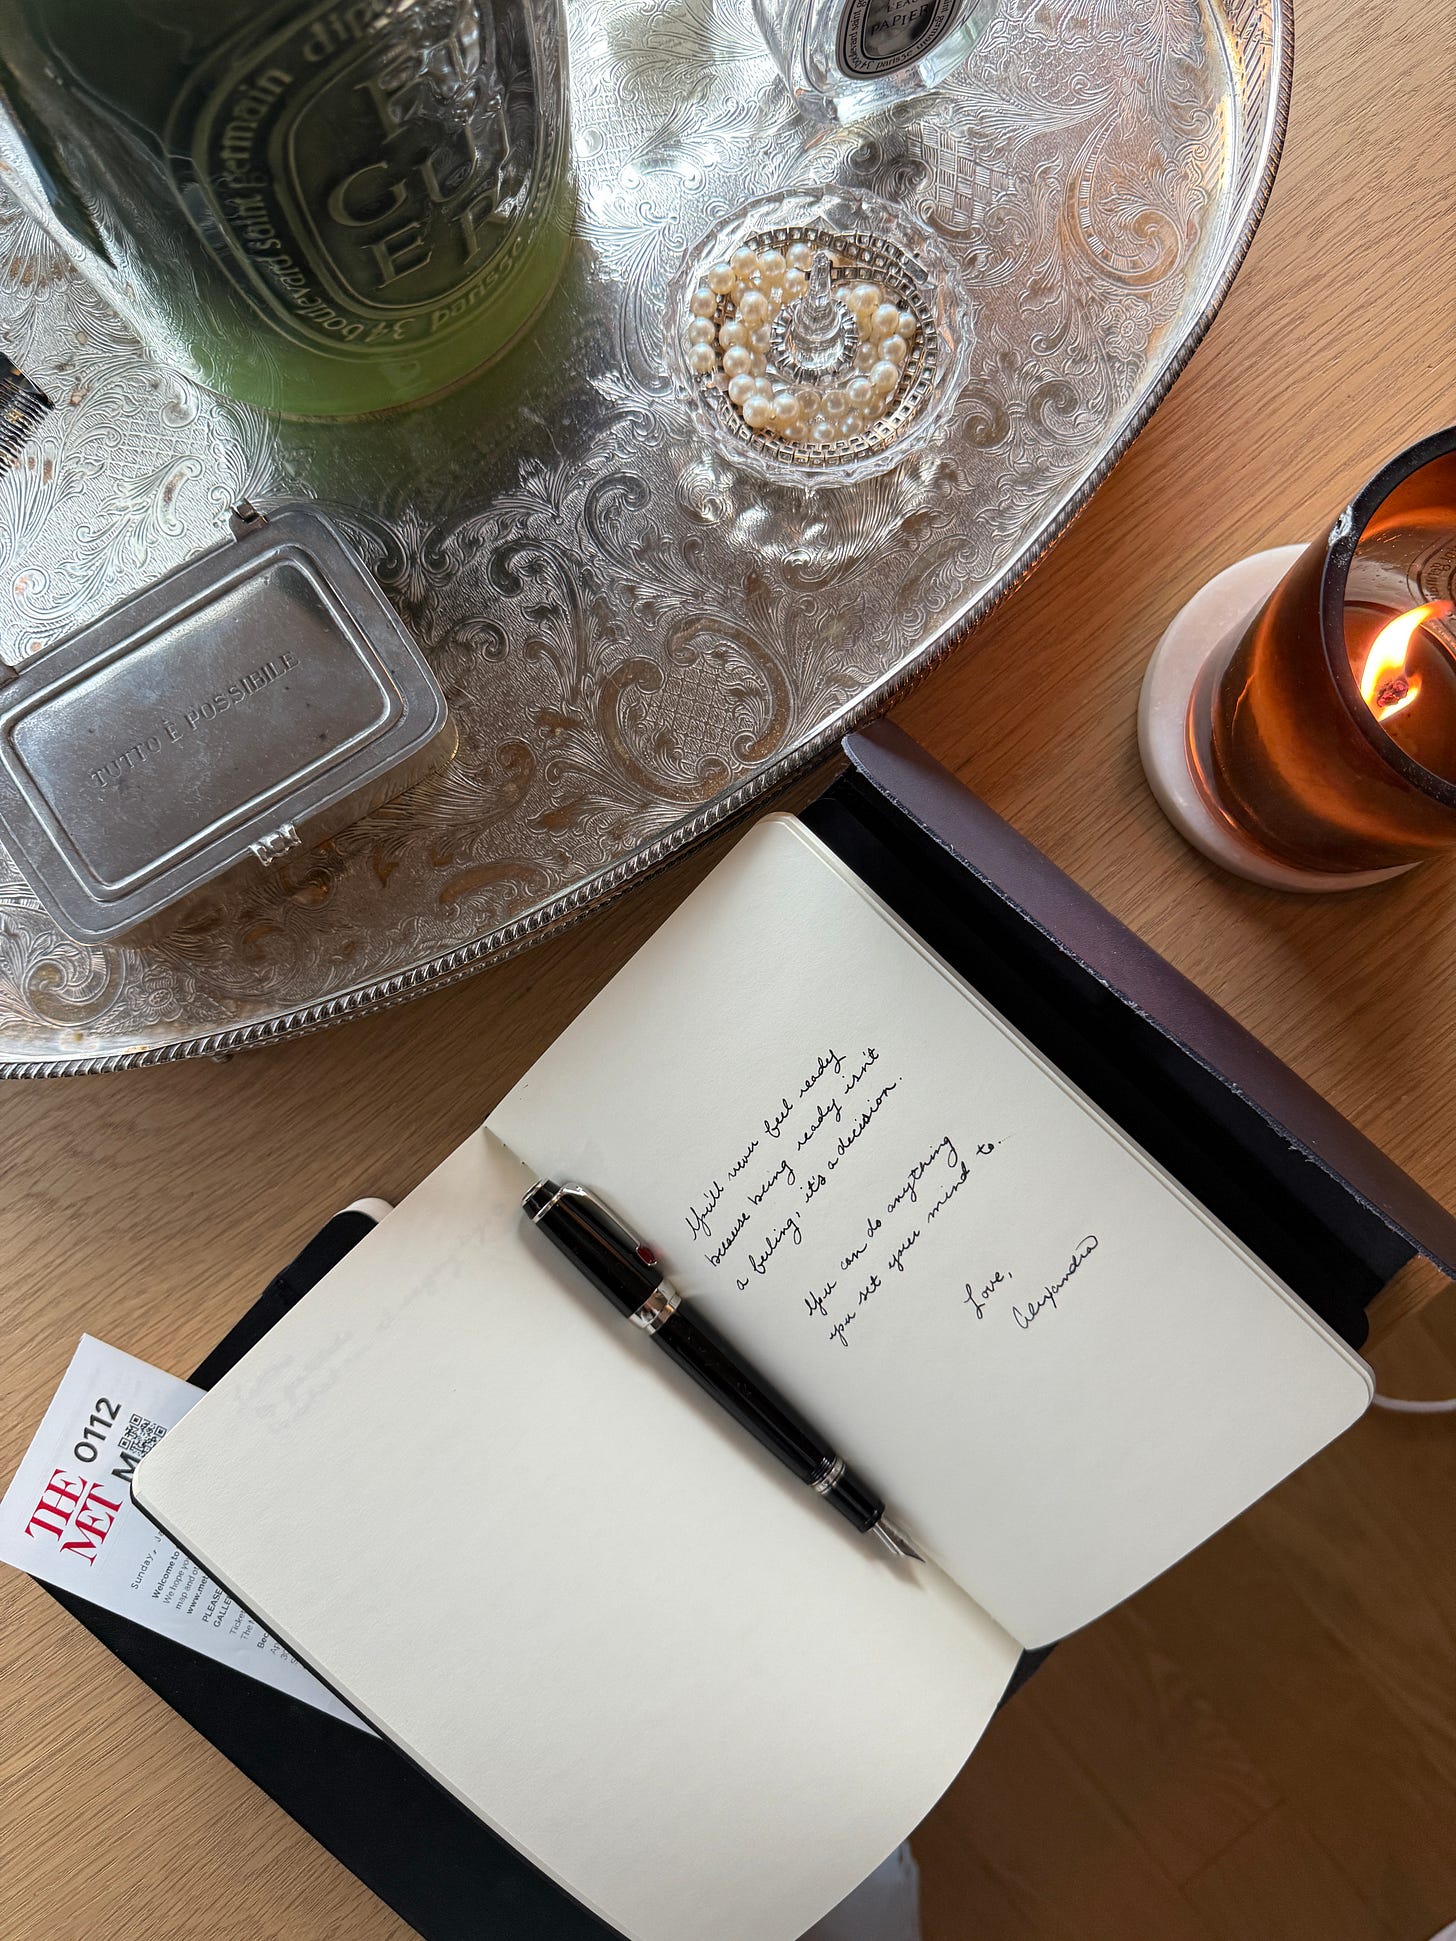 34 boulevard saint germain dip
FI
GUI
ER
34 boulevard saint germain paris5e
L'EAU
PAPIER
TUTTO È POSSIBILE
You'll never feel ready
because being ready isn't
a feeling, it's a decision.
You can do anything
you set your mind to.
Love,
Alexandra
THE
MET
0112
M
Sunday, Ja
Welcome to
We hope yo
map and of
www.met
PLEASE
GALLE
Ticket
The M
Bec